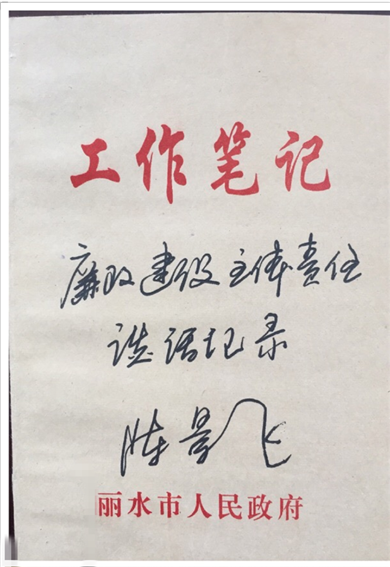 工作笔记
廉政建设主体责任
谈话纪录
陈景飞
丽水市人民政府